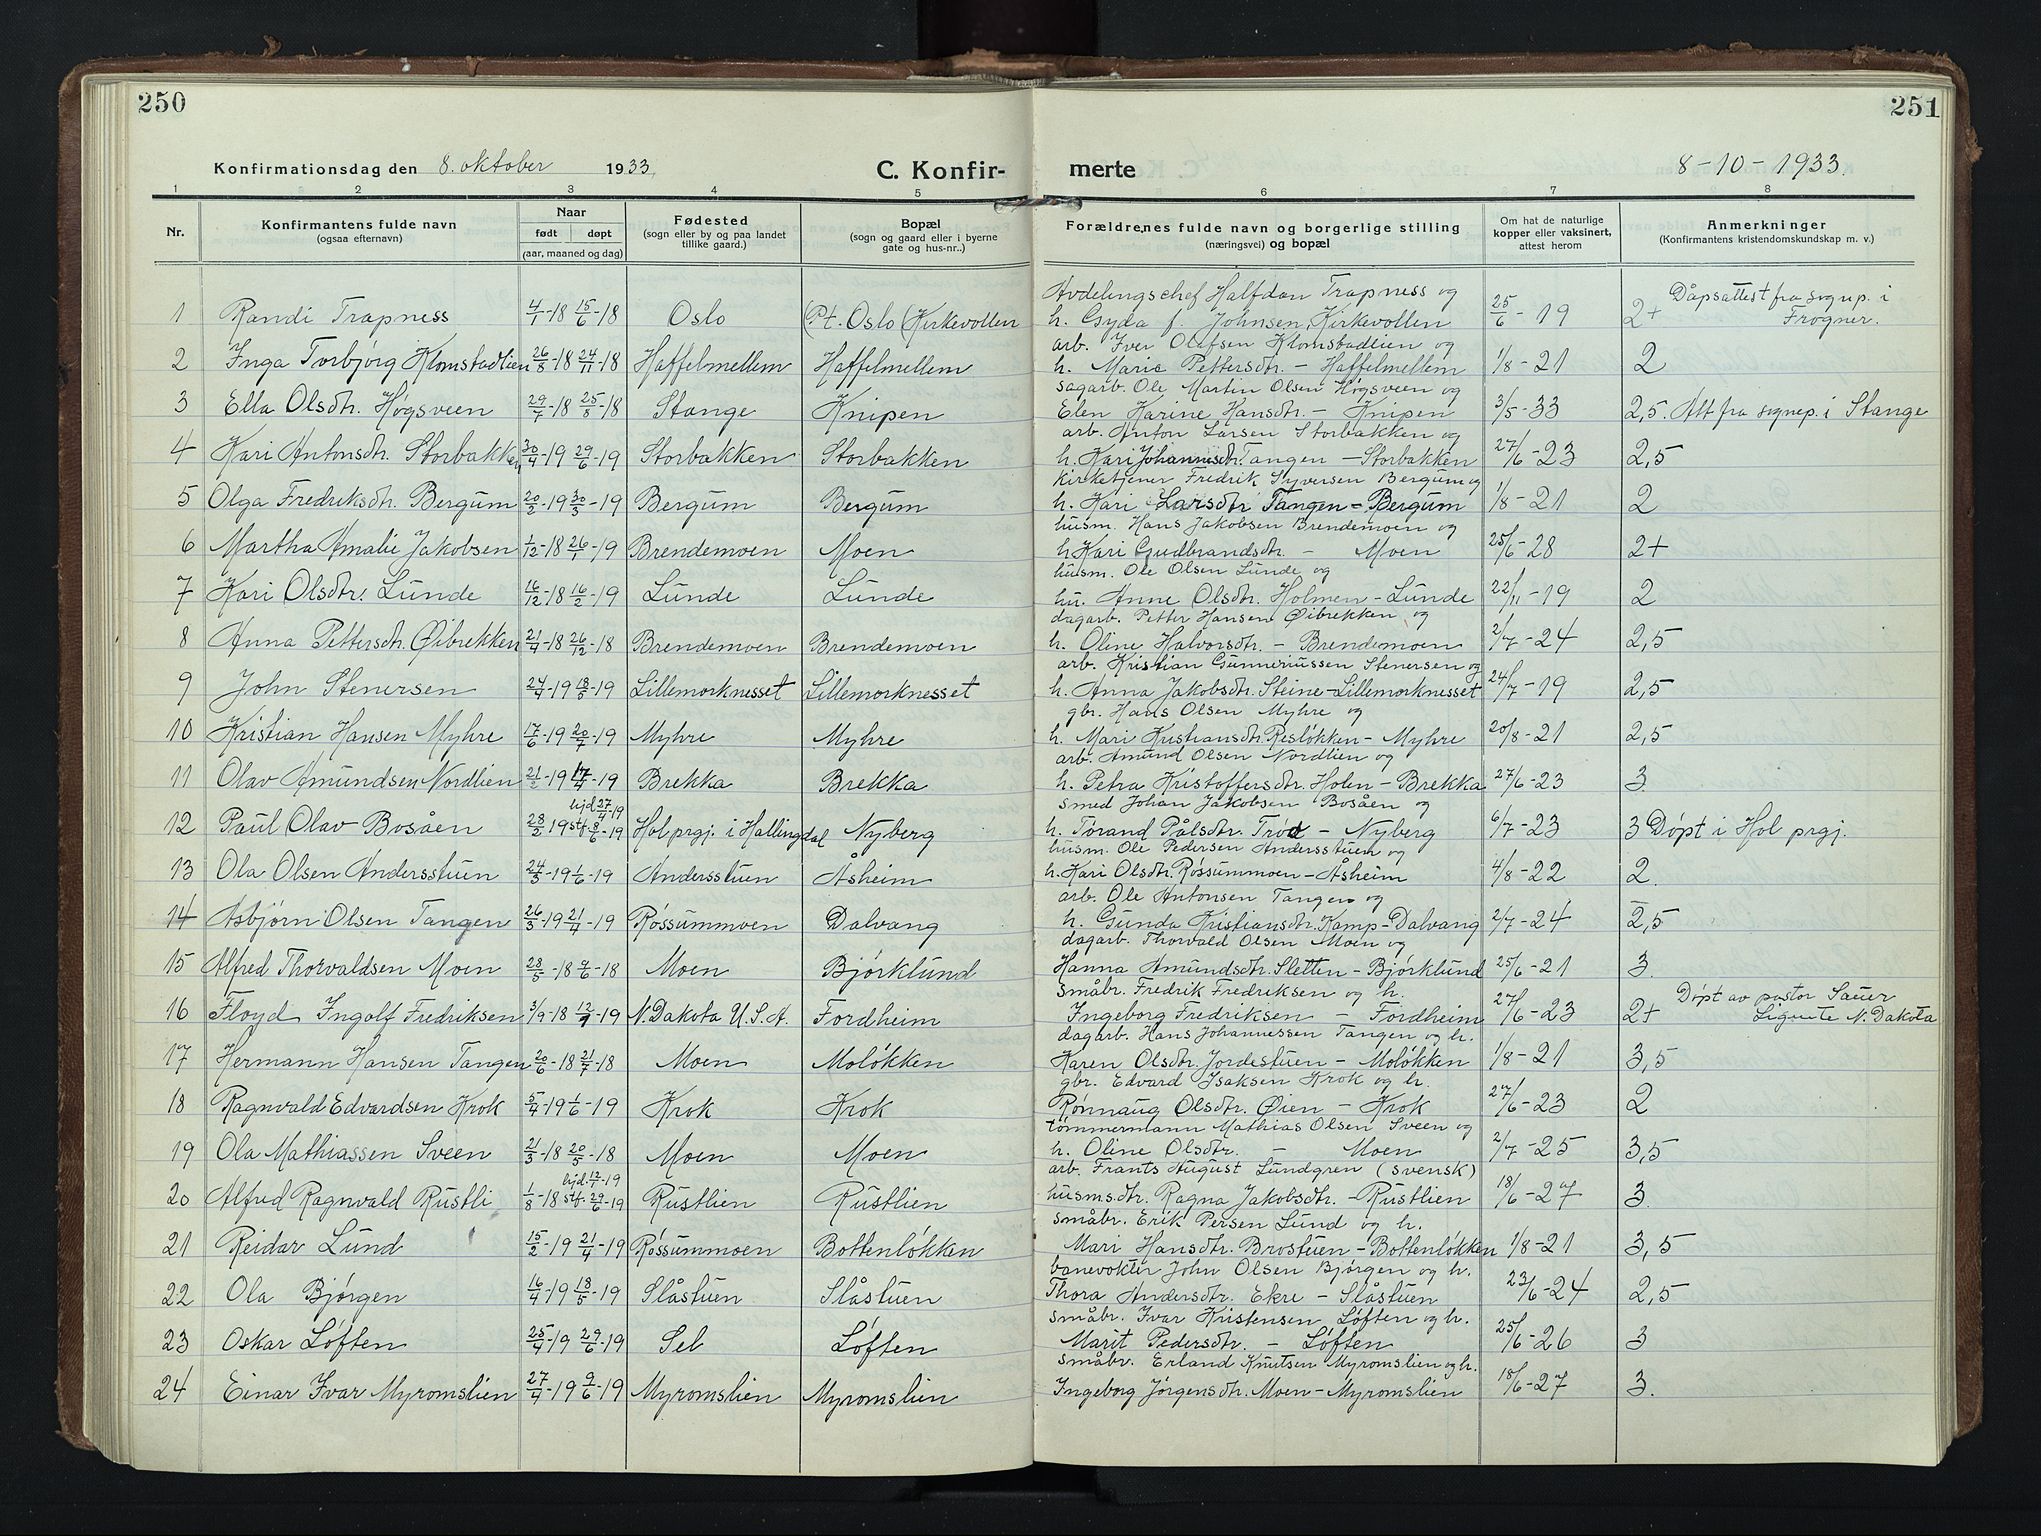 250
251
Konfirmationsdag den 8. oktober 1933
C. Konfir-
merte
8-10-1933.
1 2 3 4 5 6 7 8
Nr. Konfirmantens fulde navn (ogsaa efternavn) Naar født døpt (aar, maaned og dag) Fødested (sogn eller by og paa landet tillike gaard.) Bopæl (sogn og gaard eller i byerne gate og hus-nr..) Forældrenes fulde navn og borgerlige stilling (næringsvei) og bopæl Om hat de naturlige kopper eller vaksinert, attest herom Anmerkninger (Konfirmantens kristendomskundskap m. v.)
Avdelingschef Halfdan Trapness og Dåpsattest fra sognp. i
1 Randi Trapness 4/1-18 15/6-18 Oslo (Pt. Oslo (Kirkevollen h. Gyda f. Johnsen, Kirkevollen 25/6-19 2+ Frogner.
arb. Iver Olufsen Klomstadlien og
2 Inga Torbjørg Klomstadlien 26/8-18 24/11-18 Haffelmellem Haffelmellem h. Marie Pettersdtr. - Haffelmellem 1/8-21 2
sagarb. Ole Martin Olsen Høgsveen og
3 Ella Olsdtr. Høgsveen 29/7-18 25/8-18 Stange Knipen Elen Karine Hansdtr. - Knipen 3/5-33 2,5. Att fra sognep. i Stange
arb. Anton Larsen Storbakken og
4 Kari Antonsdtr. Storbakken 30/4-19 29/6-19 Storbakken Storbakken h. Kari Johannisdtr. Tangen - Storbakken 27/6-23 2,5
kirketjener Fredrik Syversen Bergum og
5 Olga Fredriksdtr. Bergum 20/2-19 30/3-19 Bergum Bergum h. Kari Larsdtr Tangen - Bergum 1/8-21 2
husm. Hans Jakobsen Brendemoen og
6 Martha Amalie Jakobsen 1/12-18 26/1-19 Brendemoen Moen h. Kari Gudbrandsdtr. - Moen 25/6-28 2+
husm. Ole Olsen Lunde og
7 Kari Olsdtr. Lunde 16/12-18 16/2-19 Lunde Lunde hu. Anne Olsdtr. Holmen - Lunde 22/11-19 2
dagarb. Petter Hansen Øibrekken og
8 Anna Pettersdtr. Øibrekken 21/4-18 26/12-18 Brendemoen Brendemoen h. Oline Halvorsdtr. - Brendemoen 2/7-24 2,5
arb. Kristian Gunneriussen Stenersen og
9 John Stenersen 24/4-19 18/5-19 Lillemorknesset Lillemorknesset h. Anna Jakobsdtr. Steine - Lillemorknesset 24/7-19 2,5
gbr. Hans Olsen Myhre og
10 Kristian Hansen Myhre 17/6-19 20/7-19 Myhre Myhre h. Mari Kristiansdtr. Resløkken - Myhre 20/8-21 2,5
arb. Amund Olsen Nordlien og
11 Olav Amundsen Nordlien 21/2-19 17/4-19 Brekka Brekka h. Petra Kristoffersdtr. Holen - Brekka 27/6-23 3
hjd. 27/4-19 smed Johan Jakobsen Bosåen og
12 Paul Olav Bosåen 28/2 19 stf. 8/6-19 Hol prgj. i Hallingdal Nyberg h. Torand Pålsdtr. Trød - Nyberg 6/7-23 3 Døpt i Hol prgj.
husm. Ole Pedersen Andersstuen og
13 Ola Olsen Andersstuen 24/3-19 1/6-19 Andersstuen Åsheim h. Kari Olsdtr. Røssummoen - Åsheim 4/8-22 2.
arb. Ole Antonsen Tangen og
14 Asbjørn Olsen Tangen 26/3-19 21/4-19 Røssummoen Dalvang h. Gunda Kristiansdtr. Kamp - Dalvang 2/7-24 2,5
dagarb. Thorvald Olsen Moen og
15 Alfred Thorvaldsen Moen 28/5-18 9/6-18 Moen Bjørklund Hanna Amundsdtr. Sletten - Bjørklund 25/6-21 3.
småbr. Fredrik Fredriksen og h. Døpt av pastor Sauer
16 Floyd Ingolf Fredriksen 3/9-18 12/9-19 N. Dakota U.S.A. Fordheim Ingeborg Fredriksen - Fordheim 27/6-23 2+ Lignite N. Dakota
dagarb. Hans Johannessen Tangen og h.
17 Hermann Hansen Tangen 20/6-18 21/7-18 Moen Moløkken Karen Olsdtr. Jordestuen - Moløkken 1/8-21 3,5
gbr. Edvard Isaksen Krok og h.
18 Ragnvald Edvardsen Krok 5/4-19 1/6-19 Krok Krok Rønnaug Olsdtr. Øien - Krok 27/6-23 2
tømmermann Mathias Olsen Sveen og
19 Ola Mathiassen Sveen 21/3-18 20/5-18 Moen Moen h. Oline Olsdtr. - Moen 2/7-25 3,5
hjd. 12/1-19 arb. Frants August Lundgren (svensk)
20 Alfred Ragnvald Rustli 1/8-18 stf. 29/6-19 Rustlien Rustlien husmsdtr. Ragna Jakobsdtr. - Rustlien 18/6-27 3.
småbr. Erik Persen Lund og h.
21 Reidar Lund 15/2-19 21/4-19 Røssummoen Bottenløkken Mari Hansdtr. Brostuen - Bottenløkken 1/8-21 3,5
banevokter John Olsen Bjørgen og h.
22 Ola Bjørgen 16/4-19 18/5-19 Slåstuen Slåstuen Thora Andersdtr. Ekre - Slåstuen 23/6-24 2,5
småbr. Ivar Kristensen Løften og h.
23 Oskar Løften 25/4-19 29/6-19 Sel Løften Marit Pedersdtr. - Løften 25/6-26 3
småbr. Erland Knutsen Myromslien og h.
24 Einar Ivar Myromslien 27/4-19 9/6-19 Myromslien Myromslien Ingeborg Jørgensdtr. Moen - Myromslien 18/6-27 3.